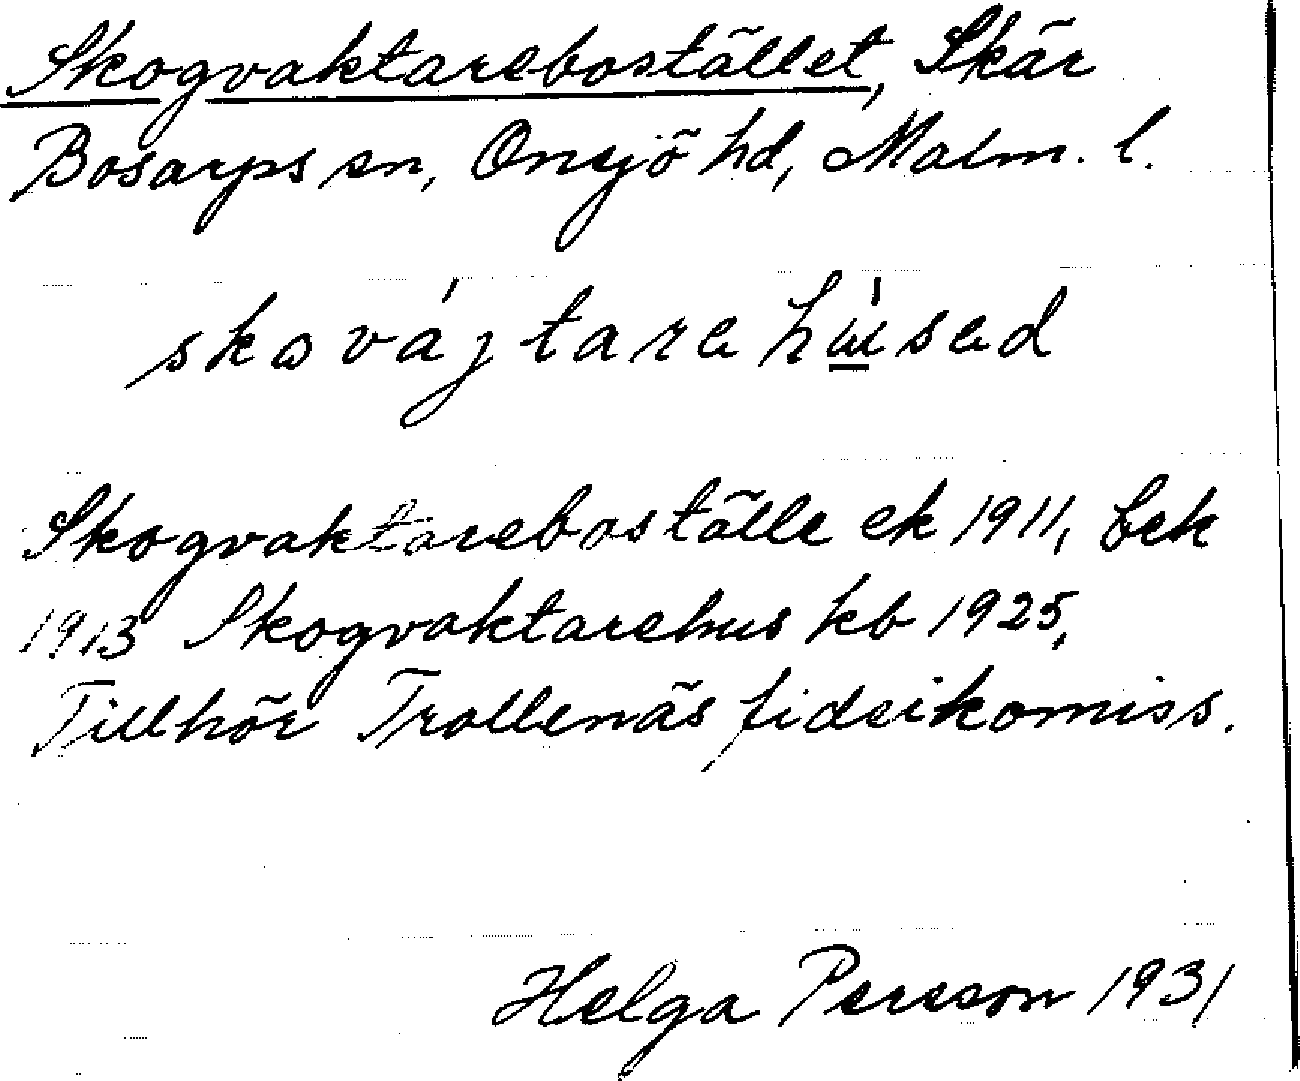 Skogvaktarebostället, Skår
Bosarps sn, Onsjö hd, Malm. l.
skovájtarehúsed
Skogvaktareboställe ek 1911, bek
1913 Skogvaktarehus kb 1925,
Tillhör Trollenäs fideikomiss.
Helga Persson 1931